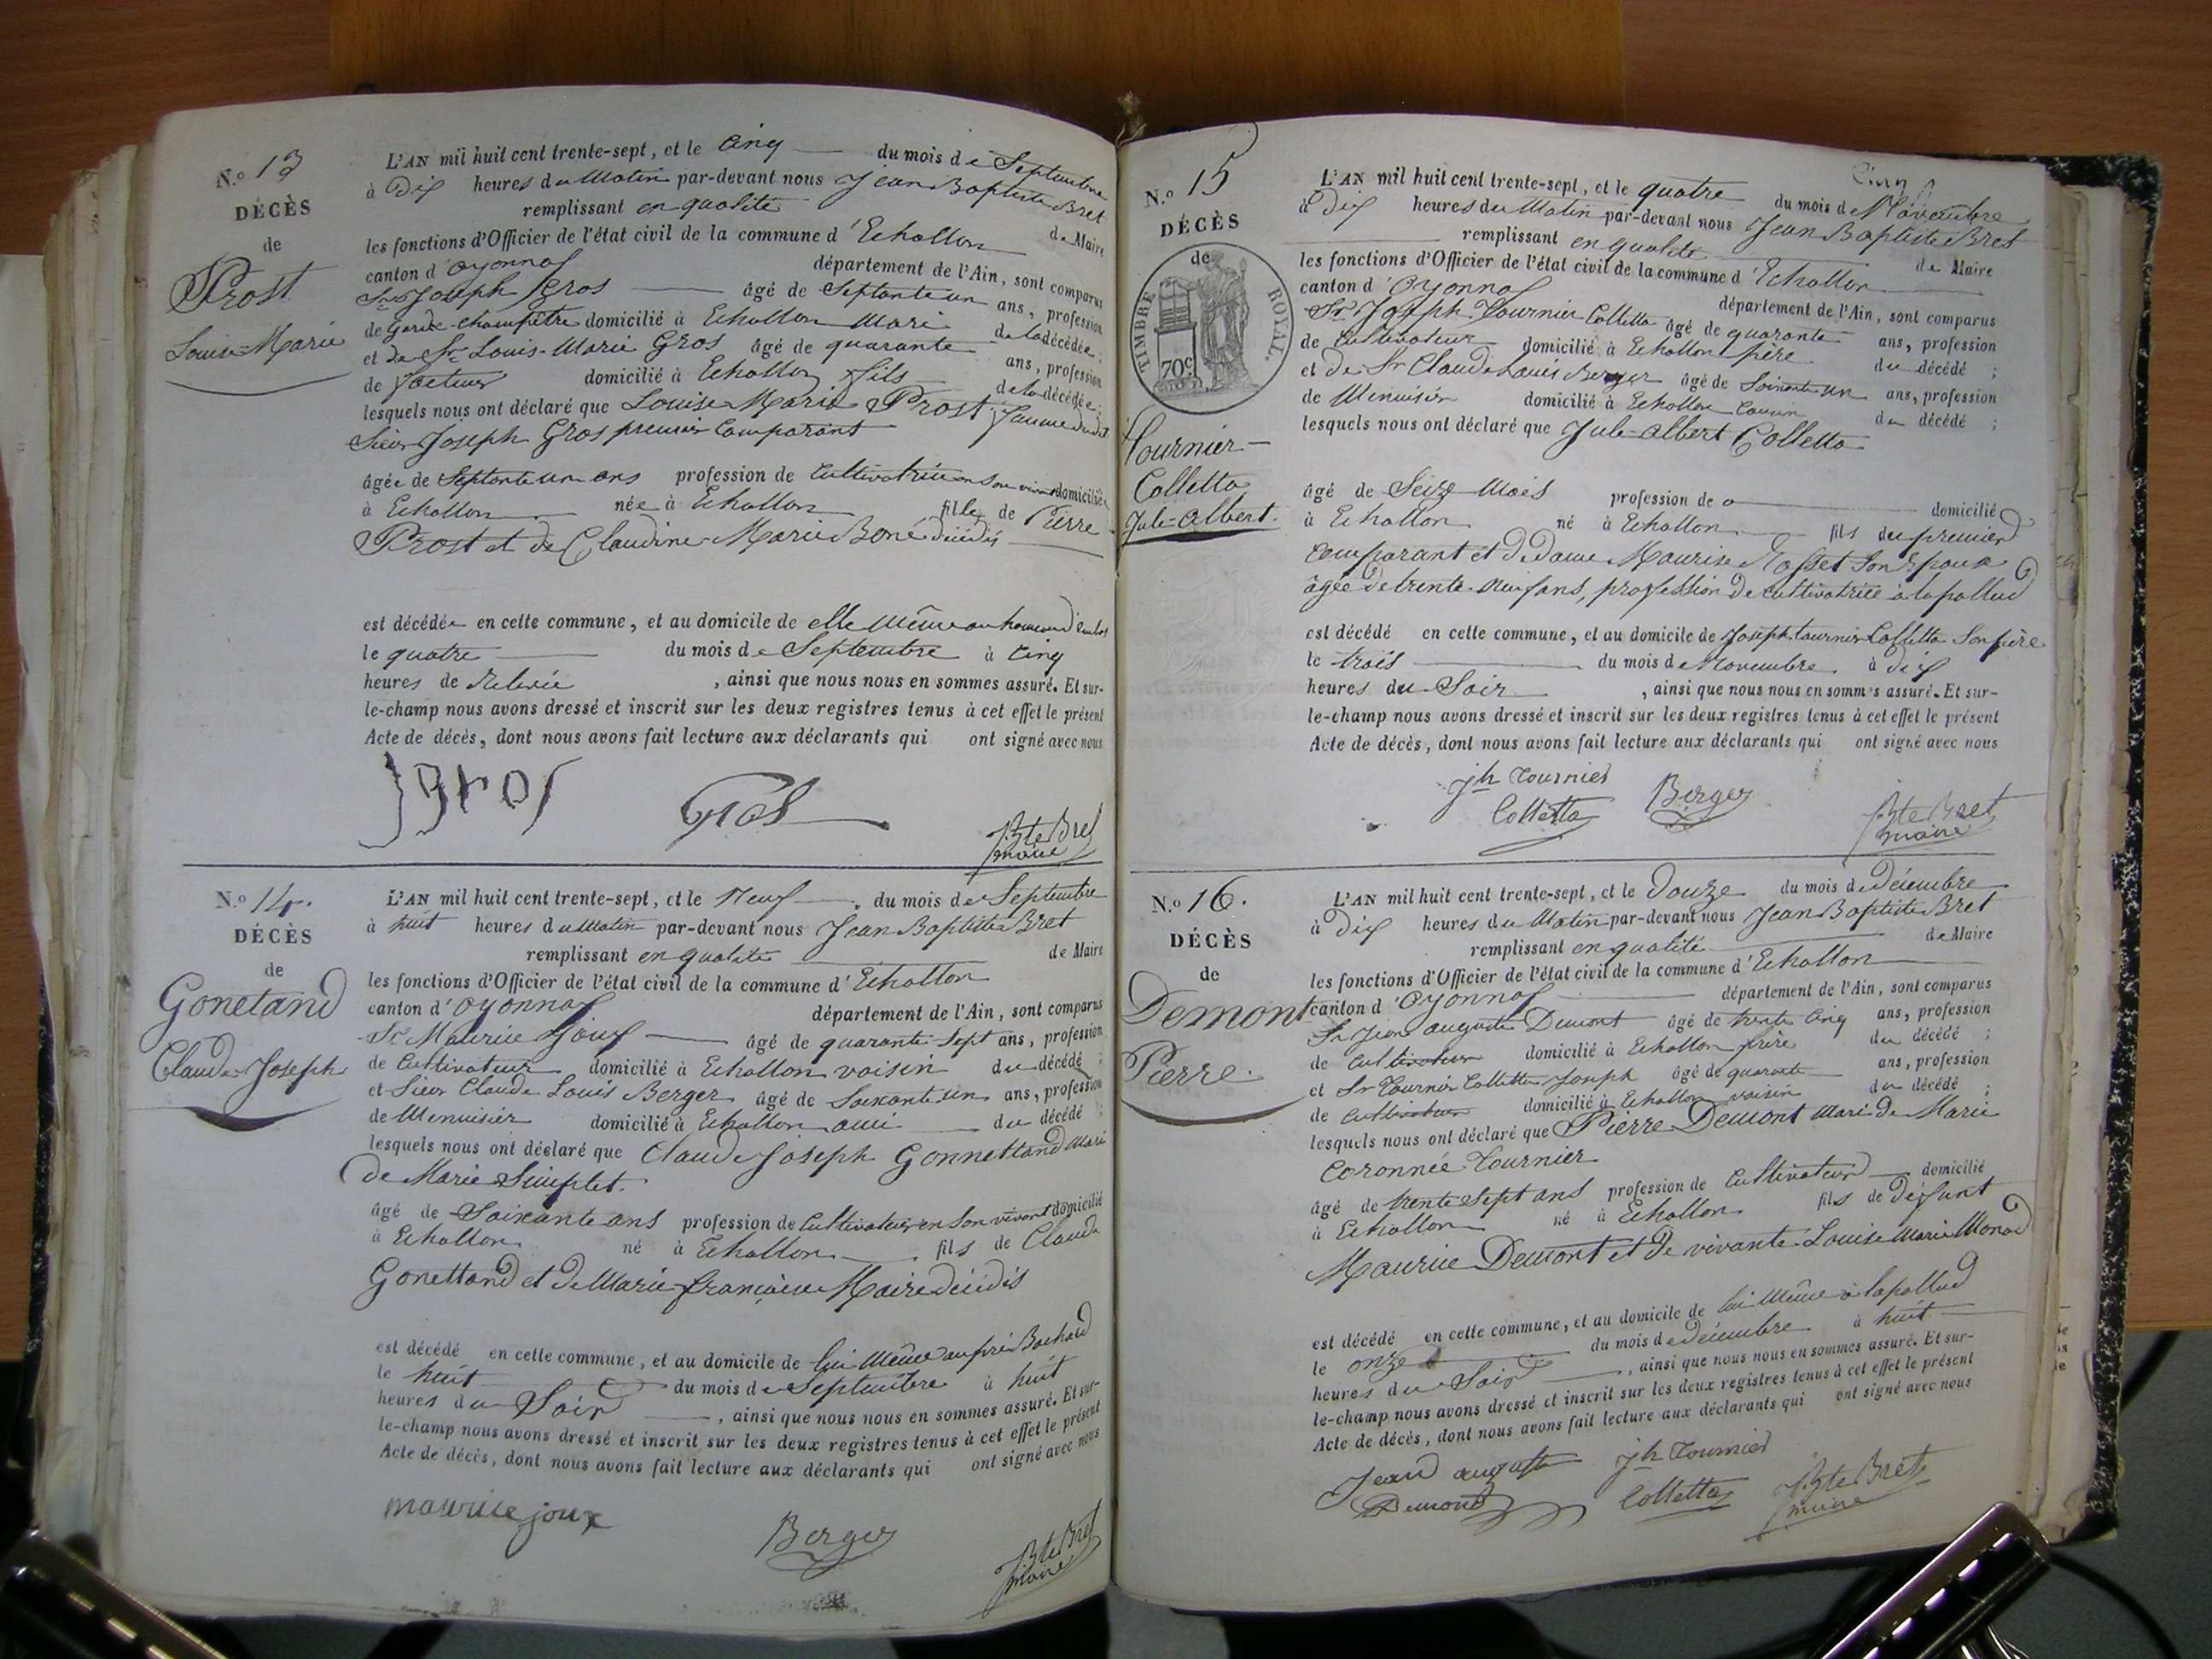 N.o 13
DÉCÈS
de
Prost
Louise-Marie
L'AN mil huit cent trente-sept, et le Cinq du mois de Septembre
à Dix heures du Matin par-devant nous Jean Baptiste Bret
remplissant en qualité de Maire
les fonctions d'Officier de l'état civil de la commune d'Echallon
canton d'Oyonnax département de l'Ain, sont comparus
Sr Joseph Gros âgé de Septante un ans, profession
de Garde-champêtre domicilié à Echallon Mari de la décédée;
et de Sr Louis-Marie Gros âgé de quarante ans, profession
de facteur domicilié à Echallon fils de la décédée;
lesquels nous ont déclaré que Louise Marie Prost femme dudit
Sieur Joseph Gros premier Comparant
âgée de Septante un ans profession de Cultivatrice en son vivant domiciliée
à Echallon née à Echallon fille de Pierre
Prost et de Claudine-Marie Boné décédés
est décédée en cette commune, et au domicile de elle Même au hameau
le quatre du mois de Septembre à Cinq
heures de Relevée, ainsi que nous nous en sommes assuré. Et sur-
le-champ nous avons dressé et inscrit sur les deux registres tenus à cet effet le présent
Acte de décès, dont nous avons fait lecture aux déclarants qui ont signé avec nous
J gros Gros
JBte Bret
maire
N.o 14.
DÉCÈS
de
Gonetand
Claude-Joseph
L'AN mil huit cent trente-sept, et le Neuf du mois de Septembre
à huit heures du Matin par-devant nous Jean Baptiste Bret
remplissant en qualité de Maire
les fonctions d'Officier de l'état civil de la commune d'Echallon
canton d'Oyonnax département de l'Ain, sont comparus
Sr Maurice Joux âgé de quarante-Sept ans, profession
de Cultivateur domicilié à Echallon voisin du décédé;
et Sieur Claude Louis Berger âgé de Soixante un ans, profession
de Menuisier domicilié à Echallon ami du décédé;
lesquels nous ont déclaré que Claude Joseph Gonnettand Mari
de Marie Simplet.
âgé de Soixante ans profession de Cultivateur en son vivant domicilié
à Echallon né à Echallon fils de Claude
Gonettand et de Marie françoise Maire décédés
est décédé en cette commune, et au domicile de lui Même au pré Bochard
le huit du mois de Septembre à huit
heures du Soir, ainsi que nous nous en sommes assuré. Et sur-
le-champ nous avons dressé et inscrit sur les deux registres tenus à cet effet le présent
Acte de décès, dont nous avons fait lecture aux déclarants qui ont signé avec nous
maurice joux Berger
JBte Bret
maire
N.o 15
DÉCÈS
de
TIMBRE ROYAL.
70c
Tournier-
Colletta
Jule-Albert.
Cinq
L'AN mil huit cent trente-sept, et le quatre du mois de Novembre
à Dix heures du Matin par-devant nous Jean Baptiste Bret
remplissant en qualité de Maire
les fonctions d'Officier de l'état civil de la commune d'Echallon
canton d'Oyonnax département de l'Ain, sont comparus
Sr Joseph Tournier Colletta âgé de quarante ans, profession
de Cultivateur domicilié à Echallon père du décédé;
et de Sr Claude Louis Berger âgé de Soixante un ans, profession
de Menuisier domicilié à Echallon Cousin du décédé;
lesquels nous ont déclaré que Jule-Albert Colletta
âgé de Seize Mois profession de domicilié
à Echallon né à Echallon fils du premier
Comparant et de Dame Maurise Rosset Son Epouse
âgée de trente-neuf ans, profession de cultivatrice à lapallud
est décédé en cette commune, et au domicile de Joseph Tournier Colletta Son père
le trois du mois de Novembre à dix
heures du Soir, ainsi que nous nous en sommes assuré. Et sur-
le-champ nous avons dressé et inscrit sur les deux registres tenus à cet effet le présent
Acte de décès, dont nous avons fait lecture aux déclarants qui ont signé avec nous
jh Tournier
Colletta Berger
JBte Bret
maire
N.o 16.
DÉCÈS
de
Demont
Pierre.
L'AN mil huit cent trente-sept, et le Douze du mois de Décembre
à Dix heures du Matin par-devant nous Jean Baptiste Bret
remplissant en qualité de Maire
les fonctions d'Officier de l'état civil de la commune d'Echallon
canton d'Oyonnax département de l'Ain, sont comparus
Sr Jean auguste Demont âgé de trente Cinq ans, profession
de Cultivateur domicilié à Echallon frère du décédé;
et Sr Tournier Colletta Joseph âgé de quarante ans, profession
de Cultivateur domicilié à Echallon voisin du décédé;
lesquels nous ont déclaré que Pierre Demont Mari de Marie
Coronnée Tournier
âgé de trente Sept ans profession de Cultivateur domicilié
à Echallon né à Echallon fils de Défunt
Maurice Demont et de vivante Louise Marie Monod
est décédé en cette commune, et au domicile de lui Même à lapallud
le onze du mois de Décembre à huit
heures du Soir, ainsi que nous nous en sommes assuré. Et sur-
le-champ nous avons dressé et inscrit sur les deux registres tenus à cet effet le présent
Acte de décès, dont nous avons fait lecture aux déclarants qui ont signé avec nous
Jean auguste jh Tournier
Demond Colletta
JBte Bret
maire